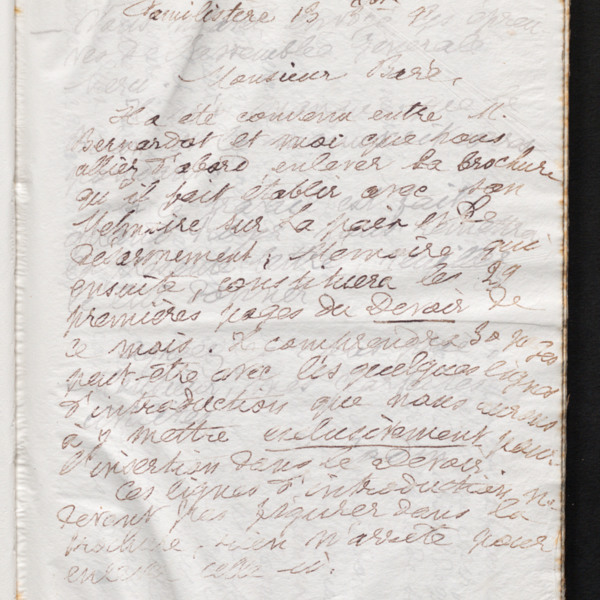 Familistère 13
Monsieur Baré,
Il a été convenu entre M.
Bernardot et moi que nous
allier d'abord enlever la brochure
qu'il fait établir avec son
Mémoire sur la paix et le
désarmement, Mémoire qui
ensuite, constituera les 29
premières pages du Devoir de
ce mois. Il comprendra 30 pages
peut-être avec les quelques lignes
d'introduction que nous aurons
à y mettre exclusivement pour
l'insertion dans le Devoir.
Ces lignes d'introduction ne
devant pas figurer dans la
brochure, rien n'arrête pour
celle-ci.